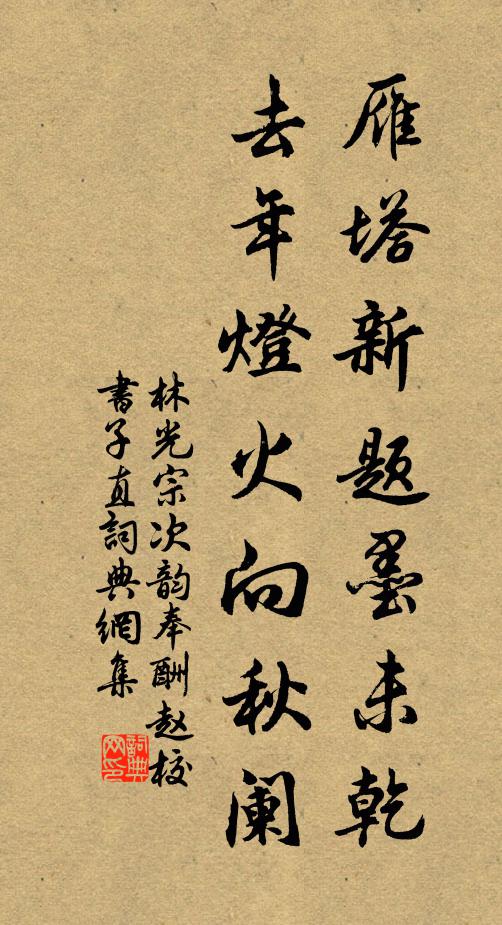 雁塔新题墨未乾
去年燈火向秋阑
林光宗次韵奉酬赵校
書子直詞典網集
詞典网印